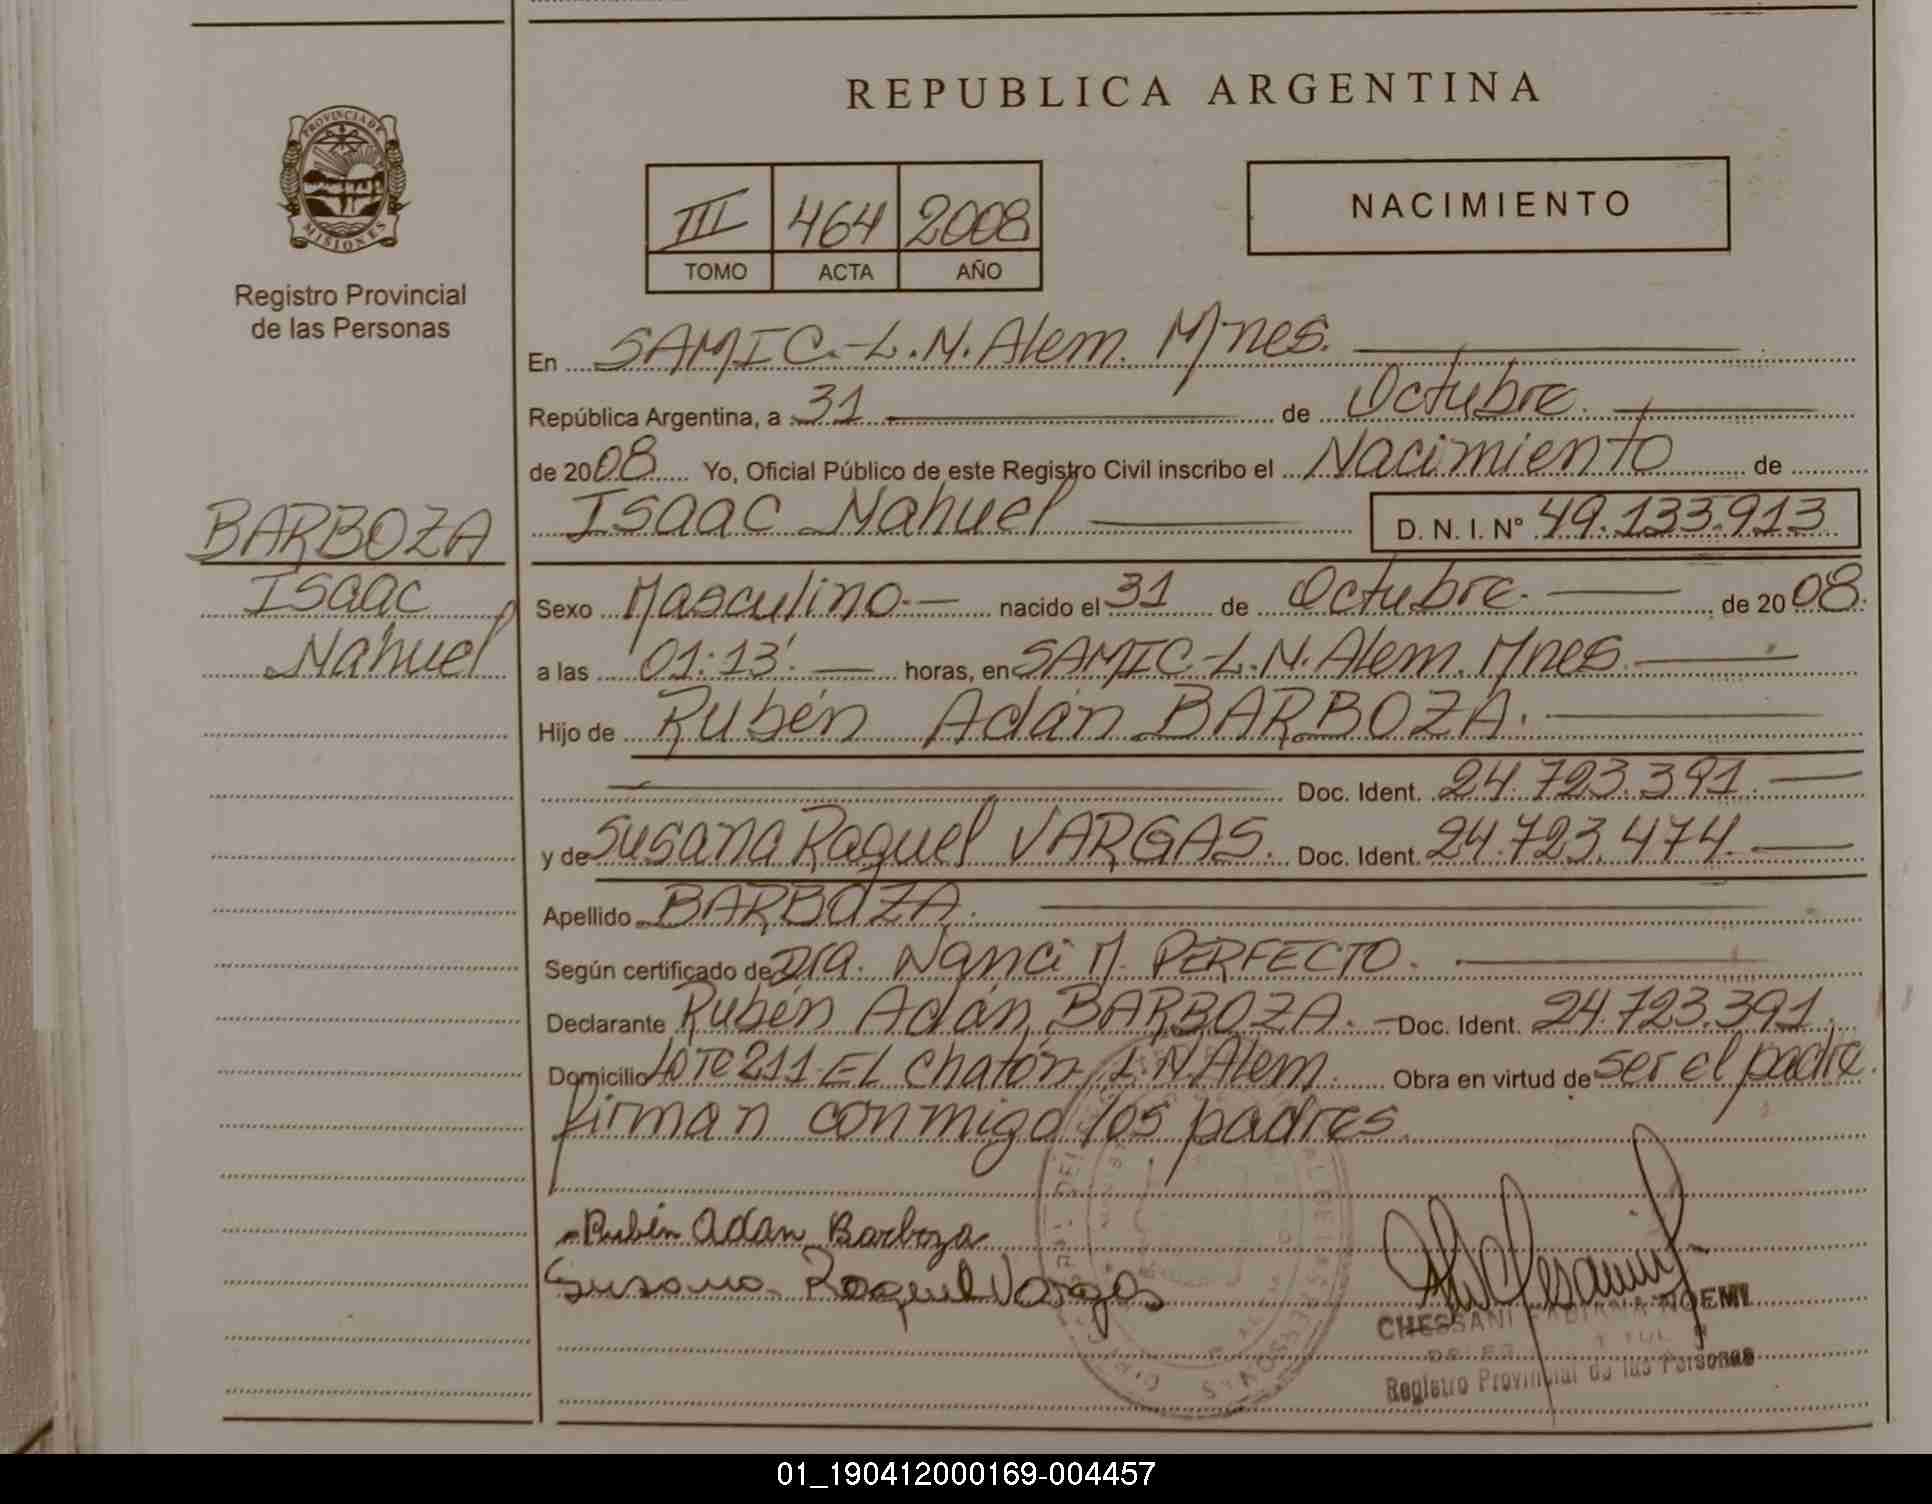 REPUBLICA ARGENTINA
PROVINCIA DE
MISIONES
Registro Provincial
de las Personas
III 464 2008
TOMO ACTA AÑO
NACIMIENTO
En SAMIC.-L.N.Alem. Mnes.
República Argentina, a 31 de Octubre.
de 2008 Yo, Oficial Público de este Registro Civil inscribo el Nacimiento de
Isaac Nahuel D. N. I. Nº 49.133.913
BARBOZA
Isaac
Nahuel
Sexo Masculino.- nacido el 31 de Octubre. de 2008.
a las 01:13'. horas, en SAMIC-L.N.Alem. Mnes.
Hijo de Rubén Adán BARBOZA.
Doc. Ident. 24.723.391.
y de Susana Raquel VARGAS. Doc. Ident. 24.723.474.
Apellido BARBOZA.
Según certificado de Dra. Nanci M. PERFECTO.
Declarante Rubén Adán BARBOZA. Doc. Ident. 24.723.391.
Domicilio LOTE 211-EL Chatón, L.N.Alem. Obra en virtud de ser el padre.
firman conmigo los padres.
Rubén Adan Barboza
Susana Raquel Vargas
CHESSANI FABIANA NOEMI
Registro Provincial de las Personas
01_190412000169-004457